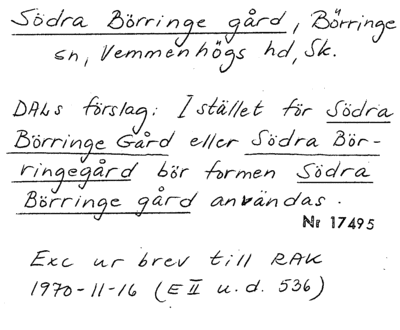 Södra Börringe gård, Börringe
sn, Vemmenhögs hd, Sk.
DALs förslag: I stället för Södra
Börringe Gård eller Södra Bör-
ringegård bör formen Södra
Börringe gård användas.
Nr 17495
Exc ur brev till RAK
1970-11-16 (E II u.d. 536)